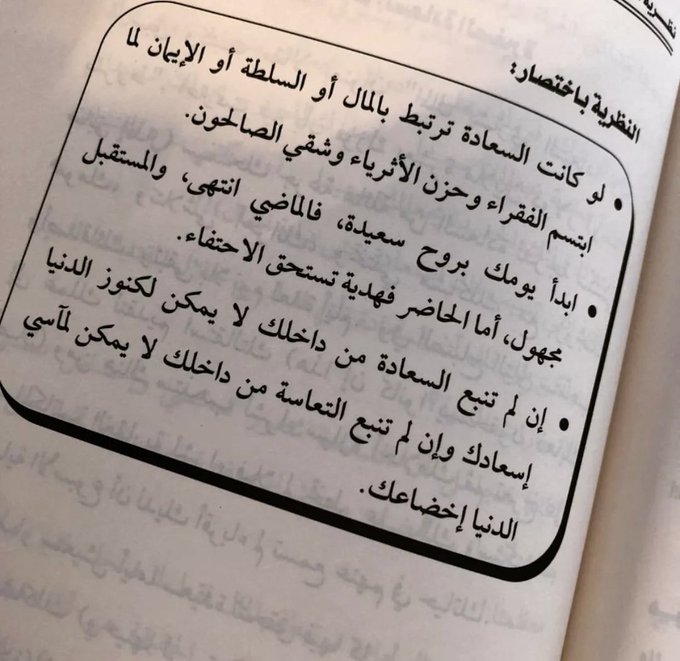 نظرية
النظرية باختصار:
• لو كانت السعادة ترتبط بالمال أو السلطة أو الإيمان لما
ابتسم الفقراء وحزن الأثرياء وشقي الصالحون.
• ابدأ يومك بروح سعيدة، فالماضي انتهى، والمستقبل
مجهول، أما الحاضر فهدية تستحق الاحتفاء.
• إن لم تنبع السعادة من داخلك لا يمكن لكنوز الدنيا
إسعادك وإن لم تنبع التعاسة من داخلك لا يمكن لمآسي
الدنيا إخضاعك.